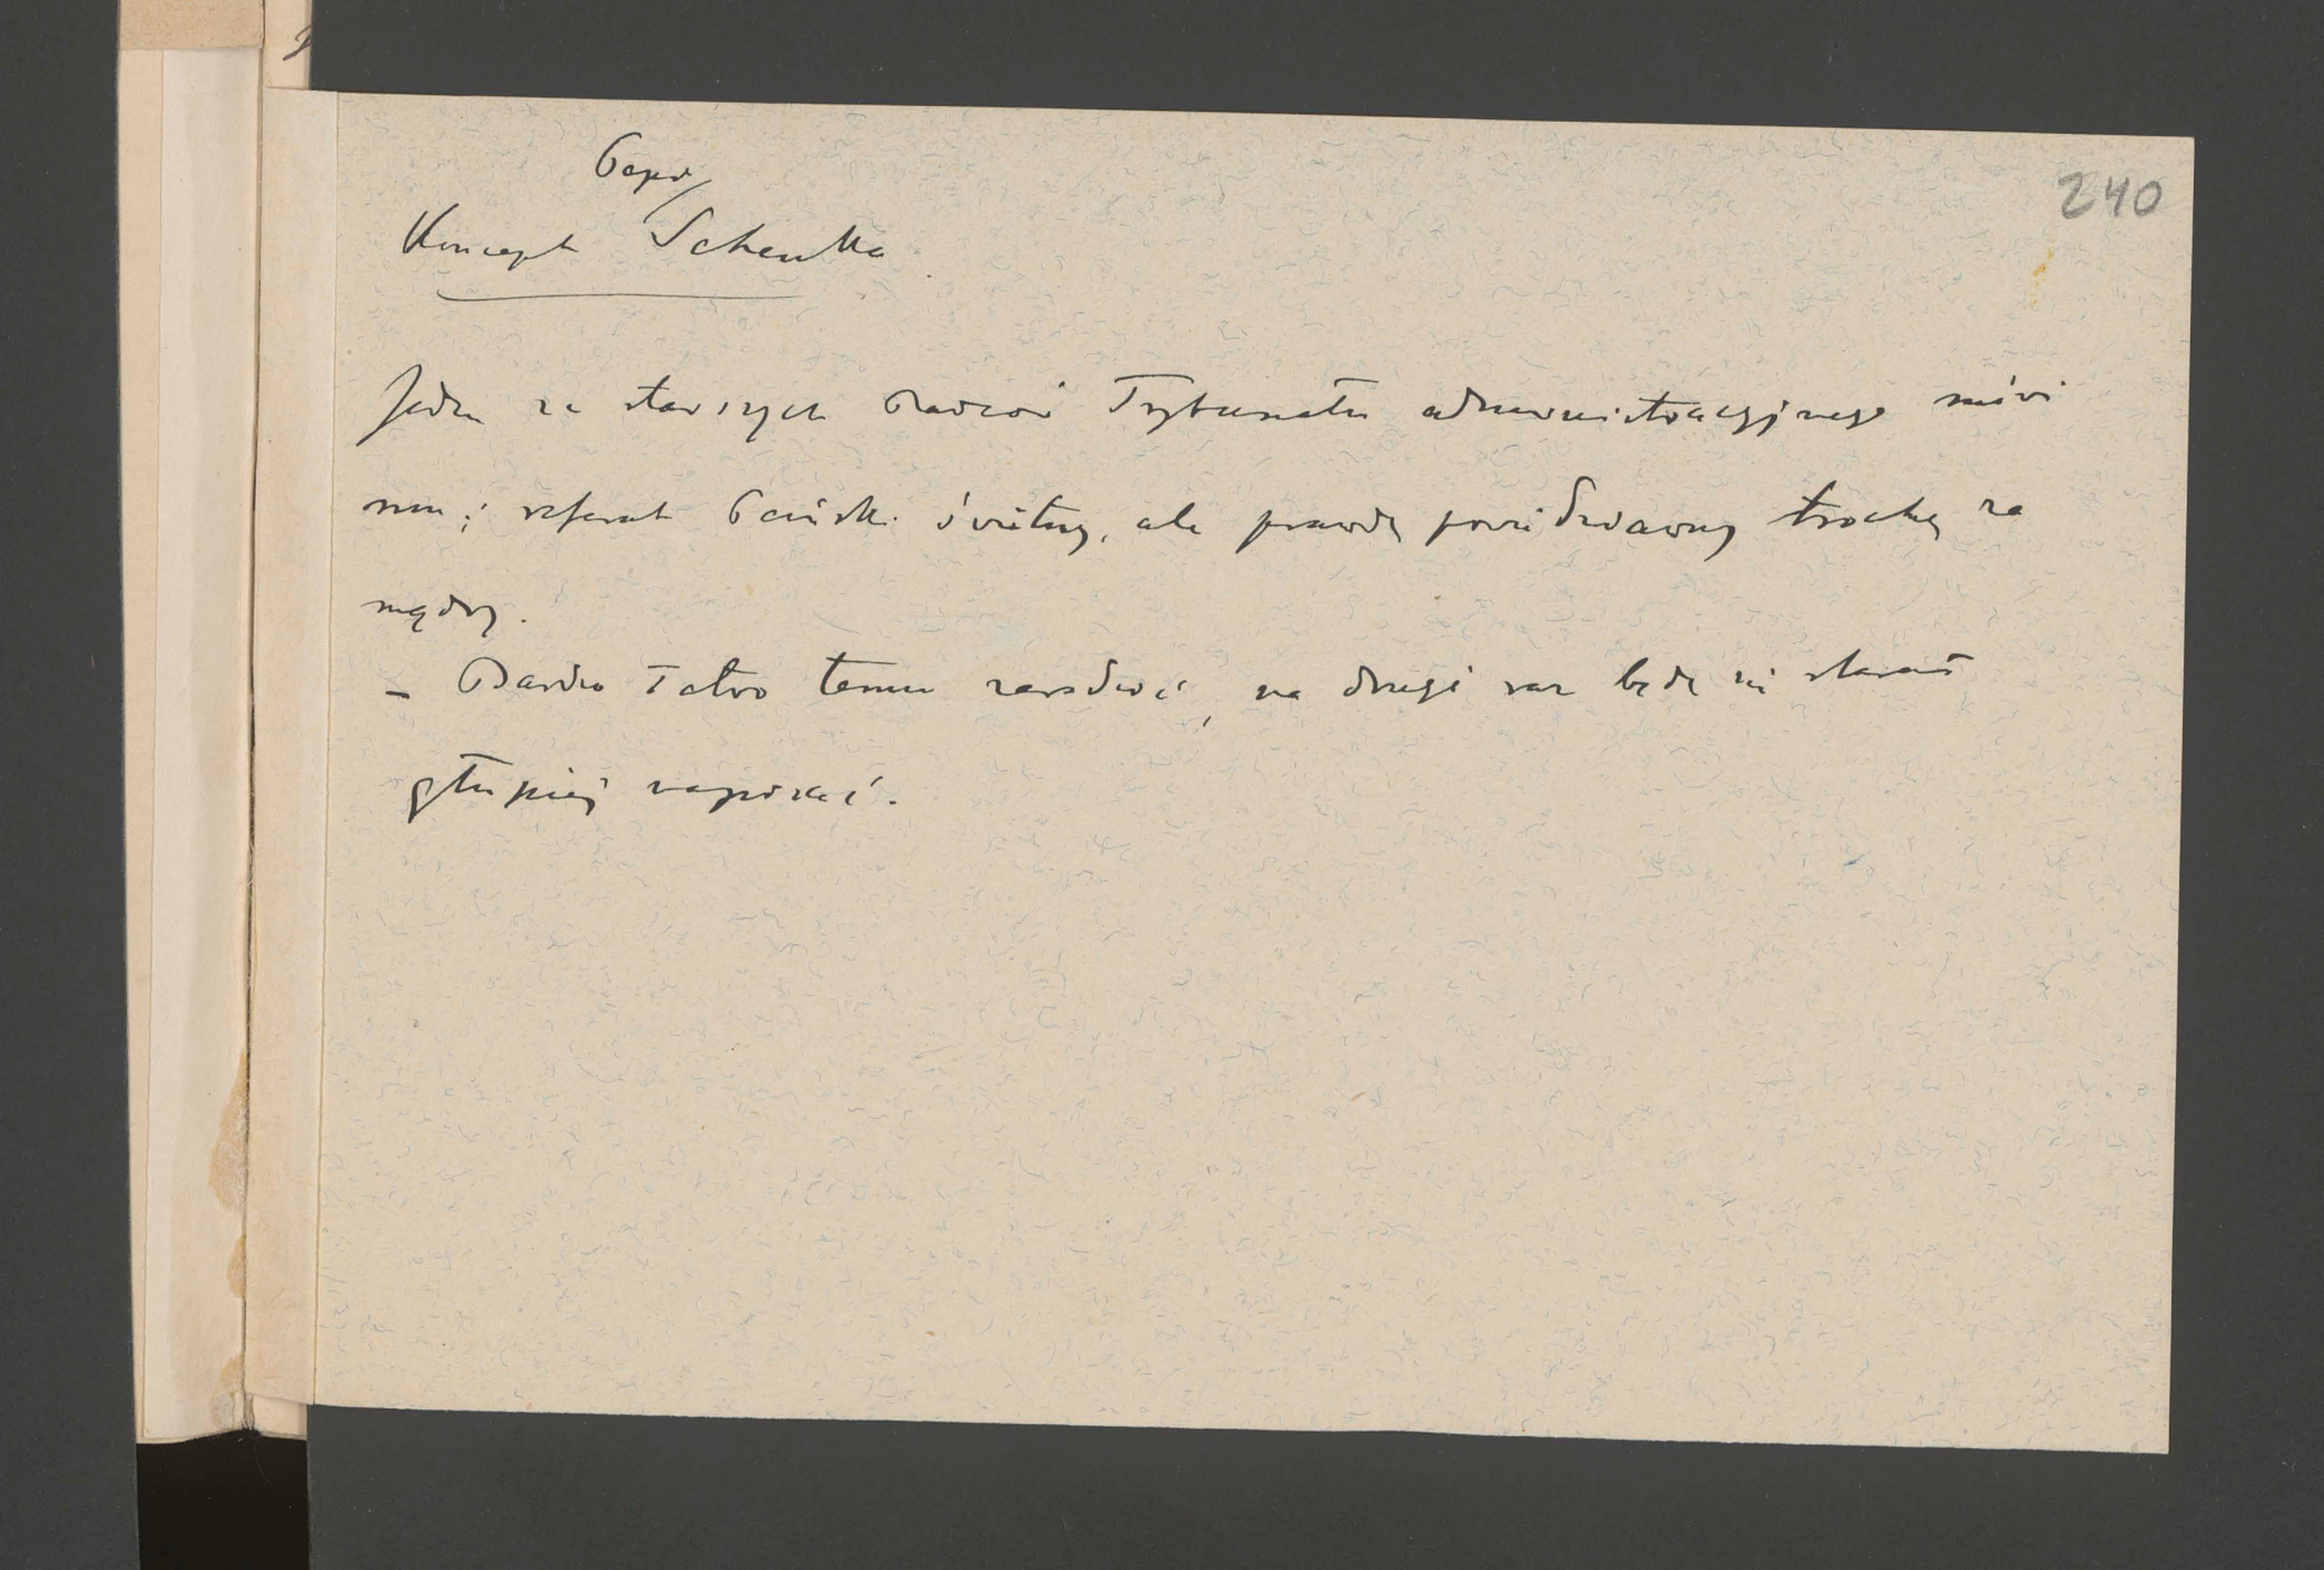 240
Koncept Schenka
Jeden ze starszych Radców Trybunału administracyjnego mówi
mu; referat Pański świetny, ale prawdę powiedziawszy trochę za
mądry.
– Bardzo łatwo temu zaradzić, na drugi raz będę się starał
głupiej napisać.